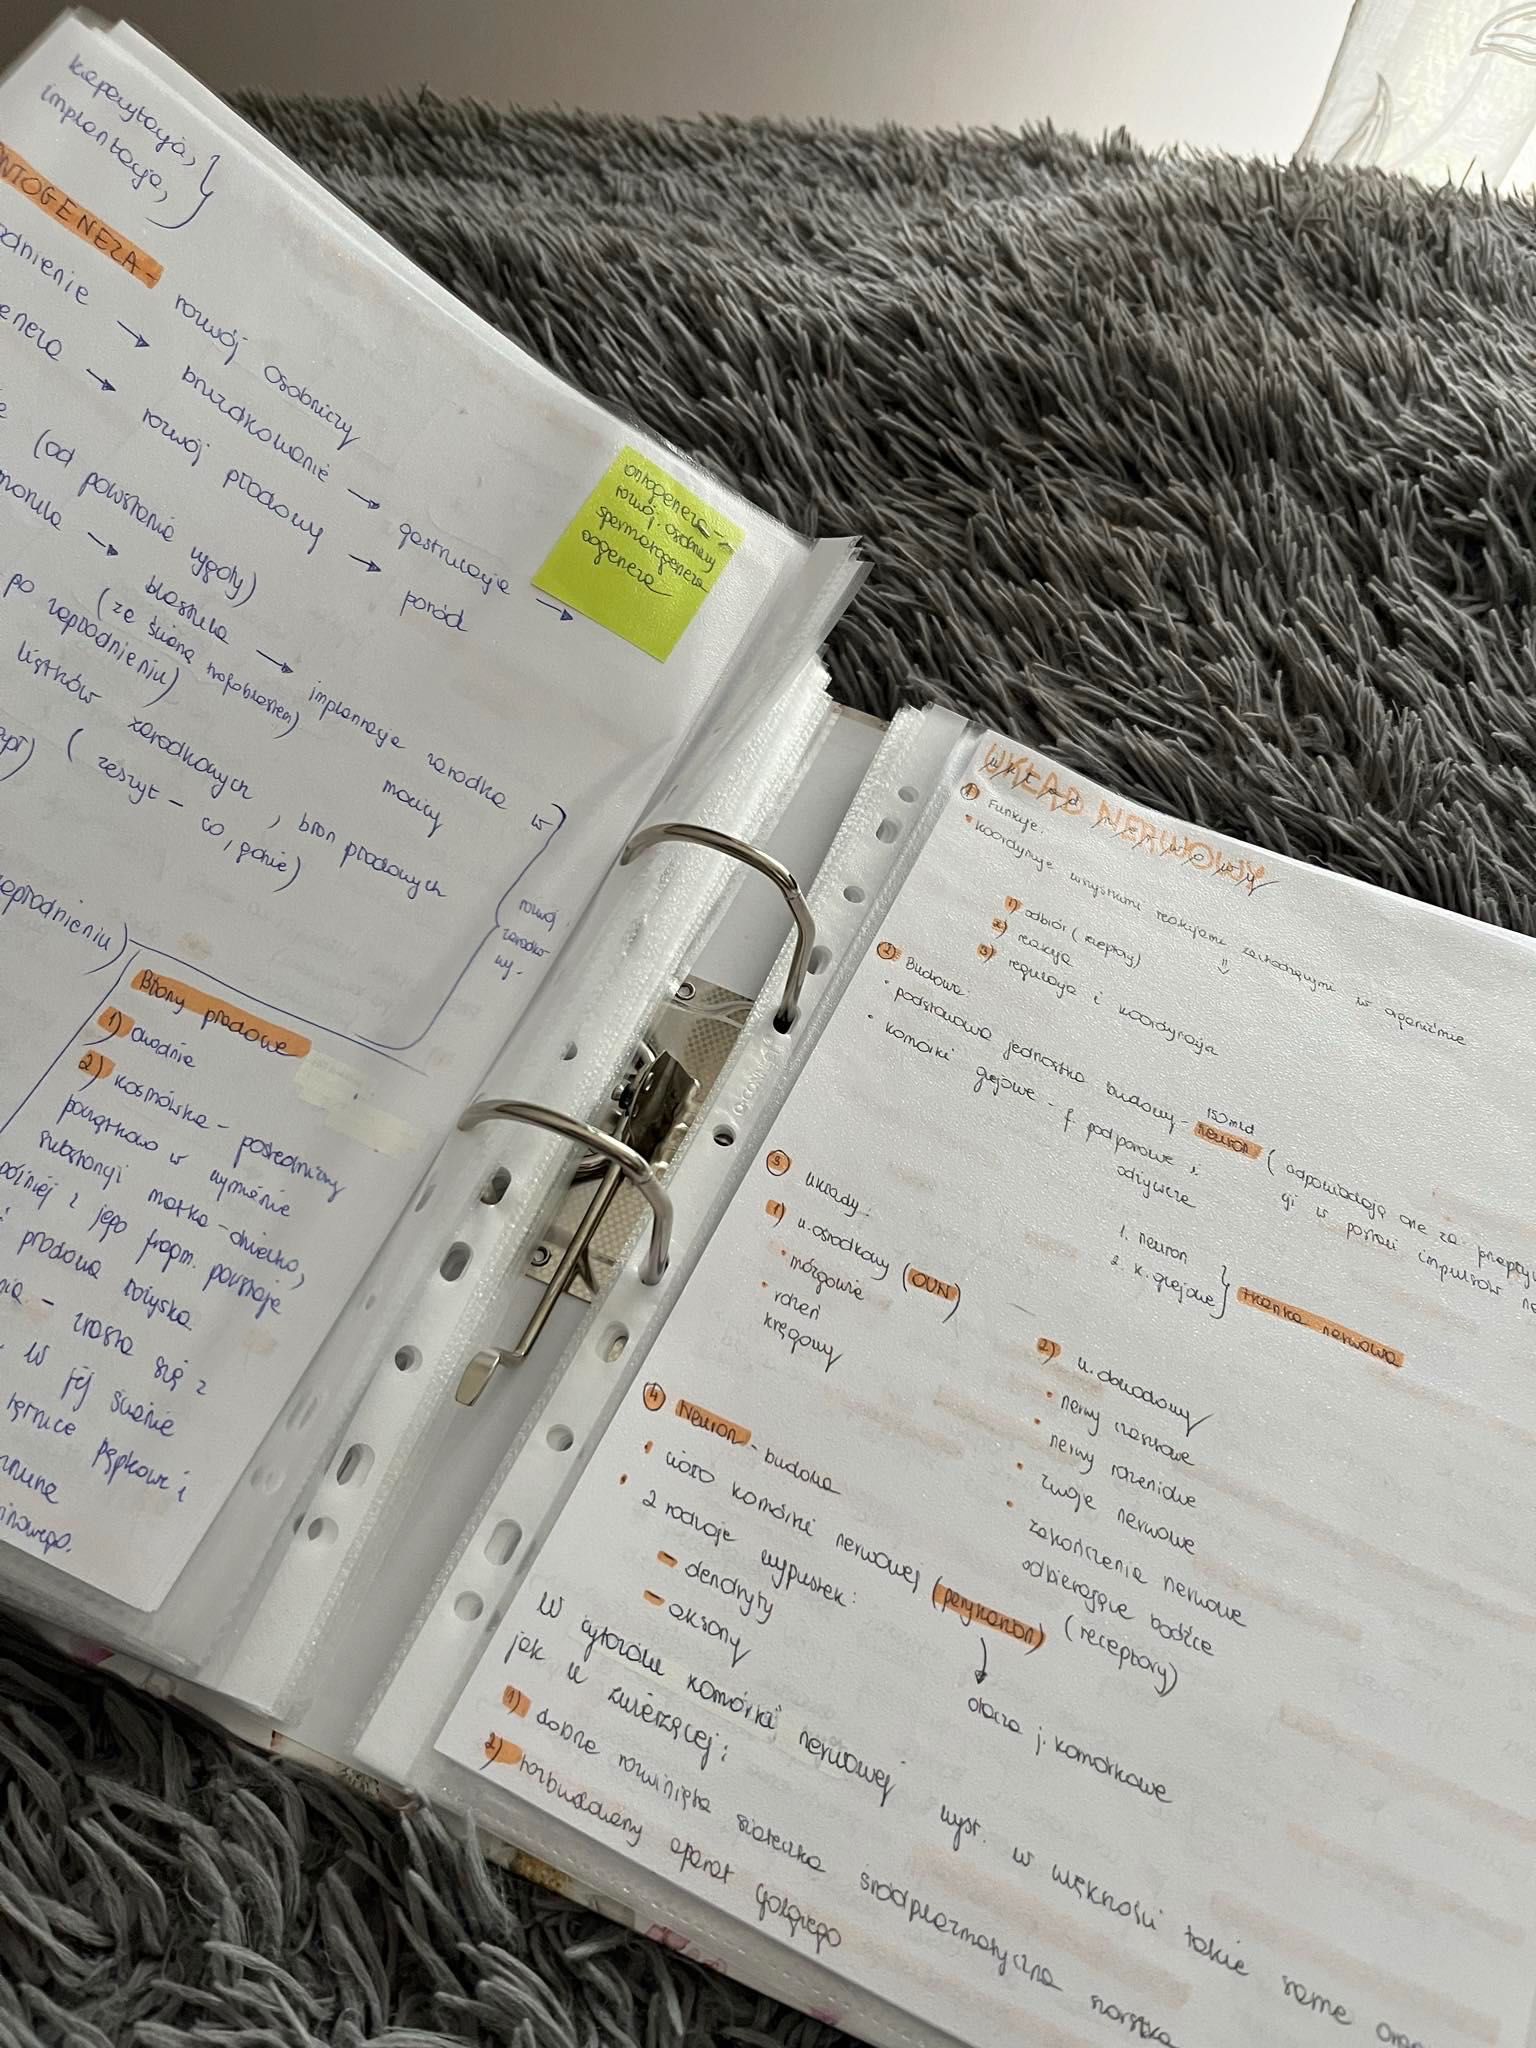 kapacytacja,
implantacja,
ONTOGENEZA - rozwój osobniczy
odnienie → bruzdkowanie → gastrulacja →
eneza → rozwój płodowy → poród
(od powstania zygoty)
morula → blastula → implantacja zarodka w
(ze ścianą trofoblastem) macicy
po zapłodnieniu)
listków zarodkowych, błon płodowych
(zeszyt - co, gdzie)
zapłodnieniu)
rozwój
zarodko
wy.
ontogeneza -
rozwój osobniczy
spermatogeneza
oogeneza
Błony płodowe
1) owodnia
2) kosmówka - pośredniczy
początkowo w wymianie
substancji matka-dziecko,
później z jego fragm. powstaje
płodowa łożyska
nia - zrasta się z
w jej ścianie
tętnice pępkowe i
inowego.
UKŁAD NERWOWY
układ nerwowy
1 Funkcje:
• koordynuje wszystkimi reakcjami zachodzącymi w organizmie
1) odbiór (receptory)
2) reakcja
3) regulacja i koordynacja
2 Budowa:
• podstawowa jednostka budowy - neuron (odpowiadają one za przepływ
150 mld
ji w postaci impulsów ne
• komórki glejowe - f. podporowe i
odżywcze
1. neuron
2. k. glejowe } tkanka nerwowa
3 układy:
1) u. ośrodkowy (OUN)
• mózgowie
• rdzeń
kręgowy
2) u. obwodowy
• nerwy czaszkowe
• nerwy rdzeniowe
• zwoje nerwowe
• zakończenia nerwowe
odbierające bodźce
(receptory)
4 Neuron - budowa
• ciało komórki nerwowej (perykarion)
↓
otacza j. komórkowe
• 2 rodzaje wypustek:
- dendryty
- aksony
W cytozolu komórki nerwowej wyst. w większości takie same orga
jak w zwierzęcej:
1) dobrze rozwinięta siateczka śródplazmatyczna szorstka
2) rozbudowany aparat Golgiego